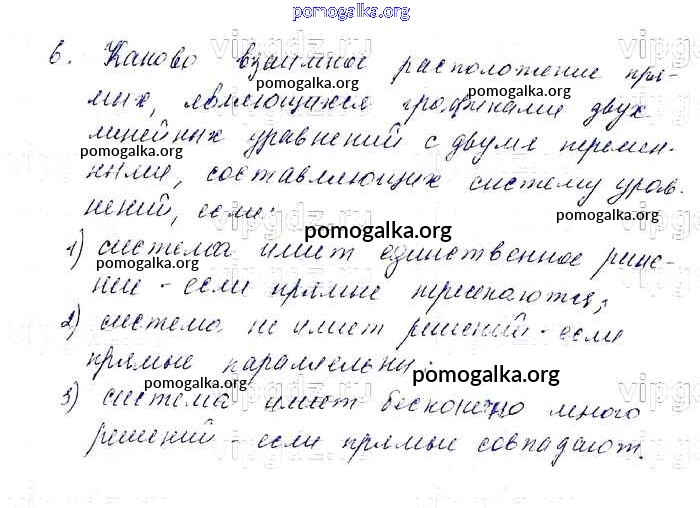 pomogalka.org
6. Каково взаимное расположение пря-
мых, являющихся графиками двух
линейных уравнений с двумя перемен-
ными, составляющих систему урав-
нений, если:
1) система имеет единственное реше-
ние - если прямые пересекаются;
2) система не имеет решений - если
прямые параллельны.
3) система имеет бесконечно много
решений - если прямые совпадают.
pomogalka.org
pomogalka.org
pomogalka.org
pomogalka.org
pomogalka.org
pomogalka.org
pomogalka.org
pomogalka.org
pomogalka.org